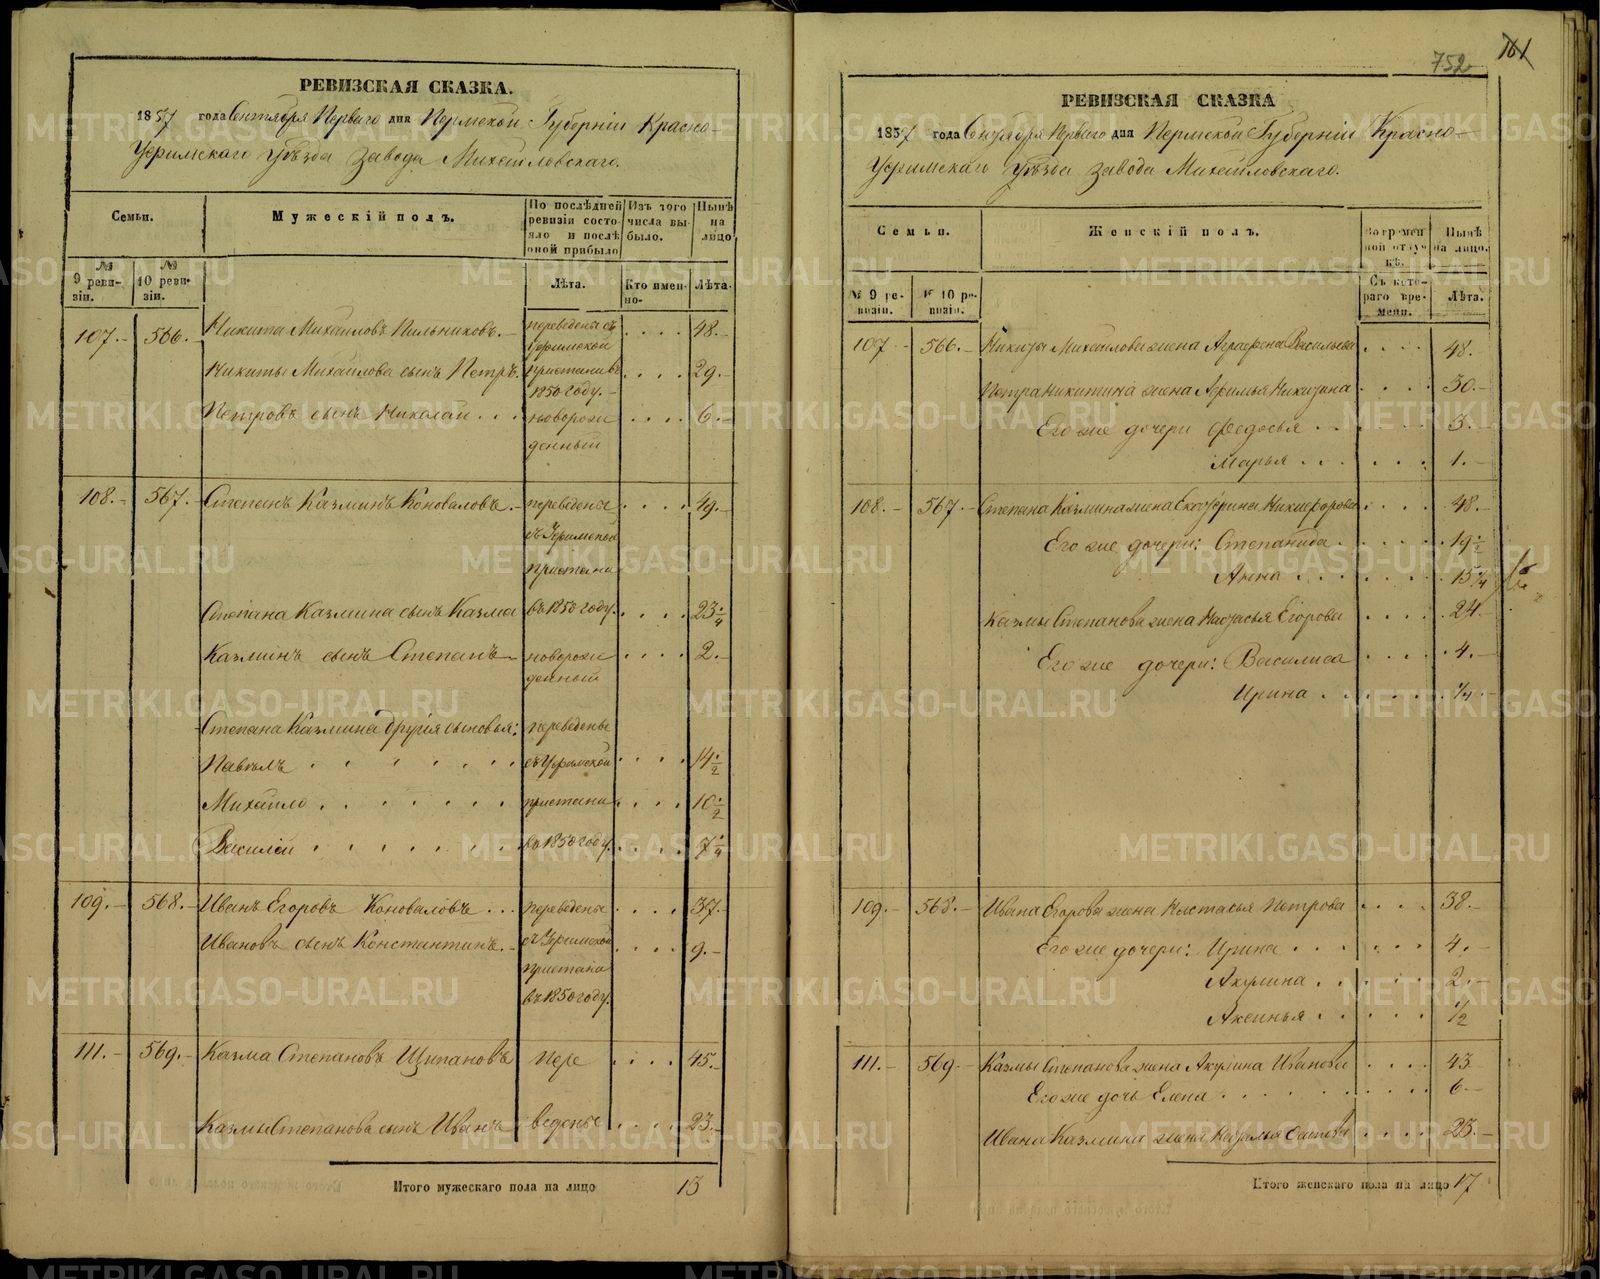 РЕВИЗСКАЯ СКАЗКА.
1857 года Сентября Перваго дня Пермской Губерніи Красно-
Уфимскаго уѣзда завода Михайловскаго.
Семьи.
Мужескій полъ.
По послѣдней ревизіи состояло и послѣ оной прибыло
Изъ того числа выбыло.
Нынѣ на лицо
№ 9 ревизіи.
№ 10 ревизіи.
Лѣта.
Кто именно.
Лѣта.
107. 566. Никита Михайловъ Пильниковъ. переведены съ 48.
Уфимской
Никиты Михайлова сынъ Петръ. пристани въ 29.
1850 году.
Петровъ сынъ Николай новорож 6.
денный
108. 567. Степанъ Казминъ Коноваловъ. переведены 49.
съ Уфимской
пристани
Степана Казмина сынъ Казма въ 1850 году. 23 1/4
Казминъ сынъ Степанъ новорож 2.
денный
Степана Казмина другія сыновья: переведены
Павелъ съ Уфимской 14 1/2
Михайло пристани 10 1/2
Василій въ 1850 году. 7 1/4
109. 568. Иванъ Егоровъ Коноваловъ переведены 37.
Ивановъ сынъ Константинъ. съ Уфимской 9.
пристани
въ 1850 году.
111. 569. Казма Степановъ Щипановъ пере 45.
Казмы Степанова сынъ Иванъ ведены 23.
Итого мужескаго пола на лицо 13
752
161
РЕВИЗСКАЯ СКАЗКА
1857 года Сентября Перваго дня Пермской Губерніи Красно-
Уфимскаго уѣзда завода Михайловскаго.
Семьи.
Женскій полъ.
Во временной отлучкѣ.
Нынѣ на лицо.
№ 9 ревизіи.
№ 10 ревизіи.
Съ котораго времени.
Лѣта.
107 566. Никиты Михайлова жена Аграфена Васильева 48.
Петра Никитина жена Афимья Никитина 30.
Его же дочери Федосья 3.
Марья 1.
108. 567. Степана Казмина жена Екатерина Никифорова 48.
Его же дочери: Степанида 19 1/2
Анна 15 1/4
Казмы Степанова жена Настасья Егорова 24.
Его же дочери: Василиса 4.
Ирина 1/4
109. 568. Ивана Егорова жена Настасья Петрова 38.
Его же дочери: Ирина 4.
Акулина 2.
Аксинья 1/2
111. 569. Казмы Степанова жена Акулина Иванова 43
Его же дочь Елена 6.
Ивана Казмина жена Наталья 23.
Итого женскаго пола на лицо 17
METRIKI.GASO-URAL.RU